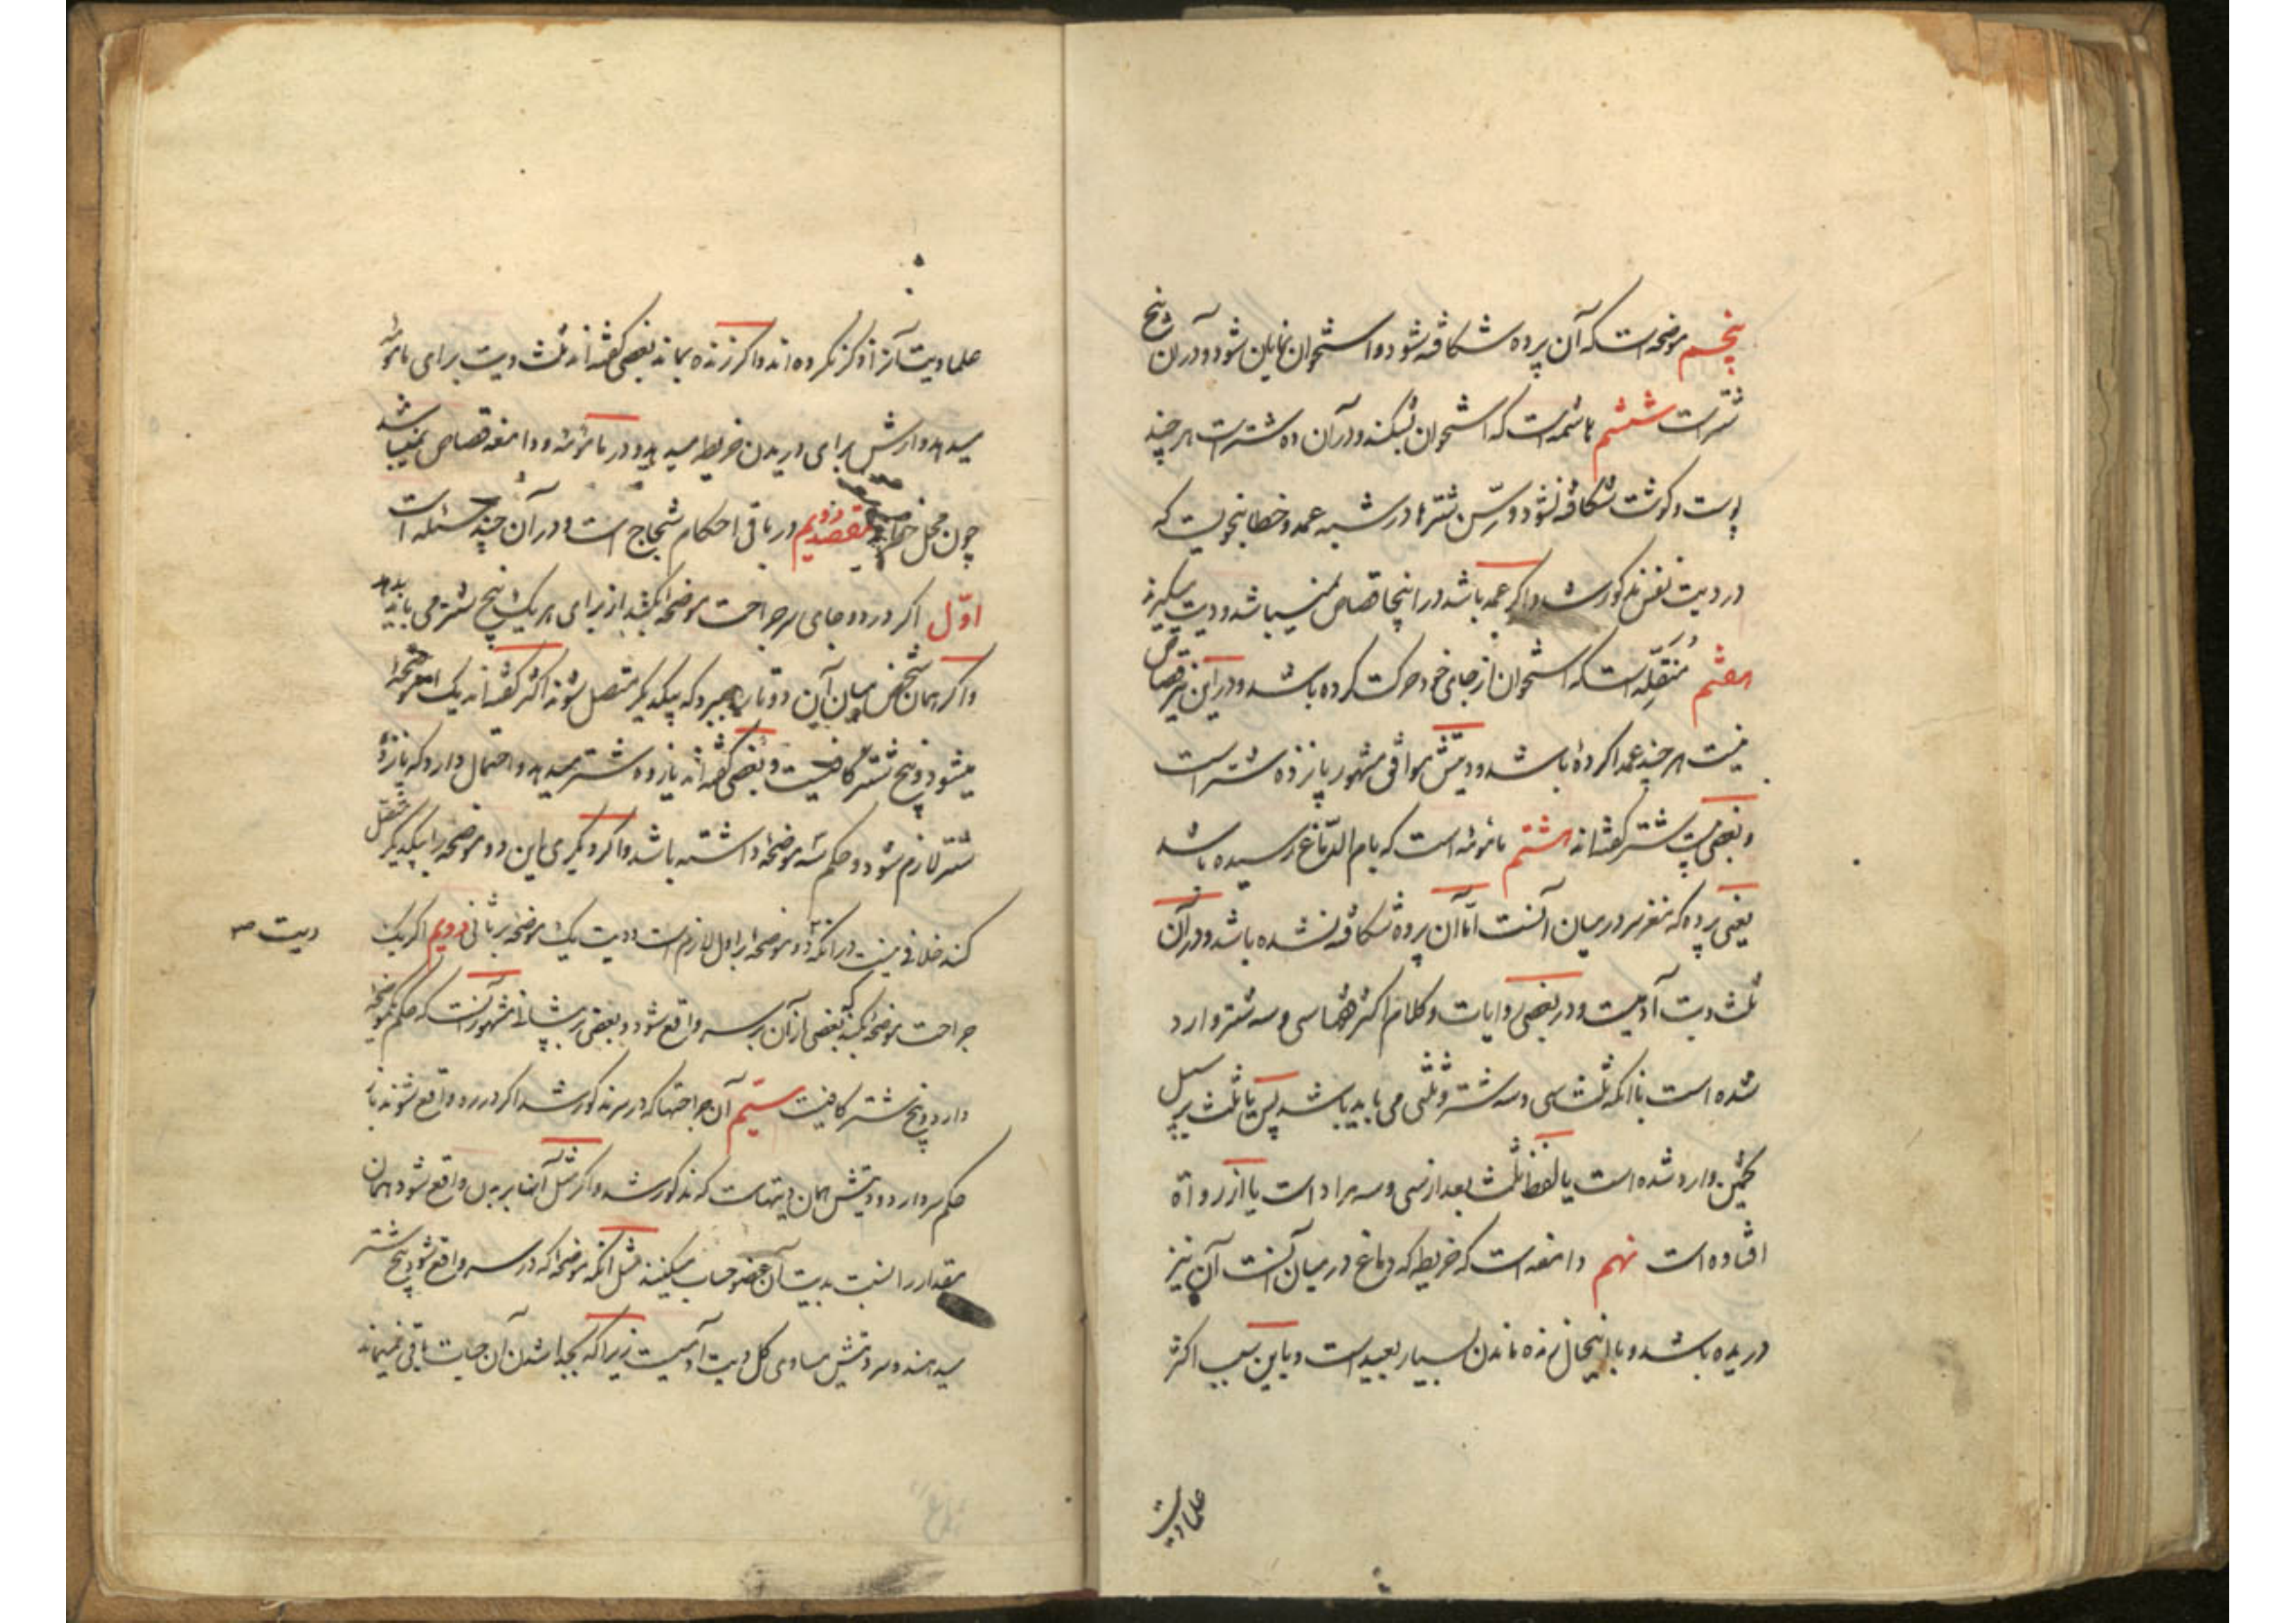 پنجم موضحه است که آن پرده شکافته شود و استخوان نمایان شود و در آن پنج
شتر است ششم هاشمه است که استخوان بشکند و در آن ده شتر است هر چند
پوست و گوشت شکافته نشود و سن شترها در شبه عمد و خطا بنحویست که
در دیت نفس مذکور شد و اگر عمد باشد در اینجا قصاص نمیباشد و دیت میگیرند
هفتم مُنَقِّله است که استخوان از جای خود حرکت کرده باشد و در این نیز قصاص
نیست هر چند عمدا کرده باشد و دیتش موافق مشهور پانزده شتر است
و بعضی بیست شتر گفته‌اند هشتم مأمومه است که بام الدماغ رسیده باشد
یعنی پرده که مغز سر در میان آنست امّا آن پرده شکافته نشده باشد و در آن
ثلث دیت آدمیست و در بعضی روایات و کلام اکثر فقها سی و سه شتر وارد
شده است با آنکه ثلث سی و سه شتر و ثلثی می باید باشد پس یا ثلث بر سبیل
تخمین وارد شده است یا لفظ ثلث بعد از سی و سه مراد است یا از رواة
افتاده است نهم دامغه است که خریطه که دماغ در میان آنست آن نیز
دریده باشد و با اینحال زنده ماندن بسیار بعید است و باین سبب اکثر
علما دیت
علما دیت آنرا ذکر نکرده اند و اگر زنده بماند بعضی گفته‌اند ثلث دیت برای مأمومه
میدهد و ارش برای دریدن خریطه میدهد و در مأمومه و دامغه قصاص نمیباشد
چون محل خطر است مقصد دویم در باقی احکام شجاج است و در آن چند مسئله است
اوّل اگر در دو جای سر جراحت موضحه بکند از برای هر یک پنج شتر می باید بدهد
و اگر همان شخص میان این دو تا را ببرد که بیکدیگر متصل شوند اکثر گفته‌اند یک موضحه
میشود و پنج شتر کافیست و بعضی گفته‌اند پانزده شتر میدهد و احتمال دارد که پانزده
شتر لازم شود و حکم سه موضحه داشته باشد و اگر دیگری این دو موضحه را بیکدیگر متصل
کند خلافی نیست در آنکه دو موضحه بر اول لازم است و دیت یک موضحه بر ثانی دویم اگر یک
دیت ص
جراحت موضحه بکند که بعضی از آن بر سر واقع شود و بعضی بر پیشانی مشهور آنست که حکم یکموضحه
دارد و پنج شتر کافیست سیّم آن جراحتها که در سر مذکور شد اگر در رو واقع شوند باز
حکم سر دارد و دیتش همان دیتهاست که مذکور شد و اگر مثل آنها بر بدن واقع شود همان
مقدار را نسبت بدیت آن عضو حساب میکنند مثل آنکه موضحه که در سر واقع شود پنج شتر
میدهند و سر دیتش مساوی کل دیت آدمیست زیرا که بجدا شدن آن حیات باقی نمیماند